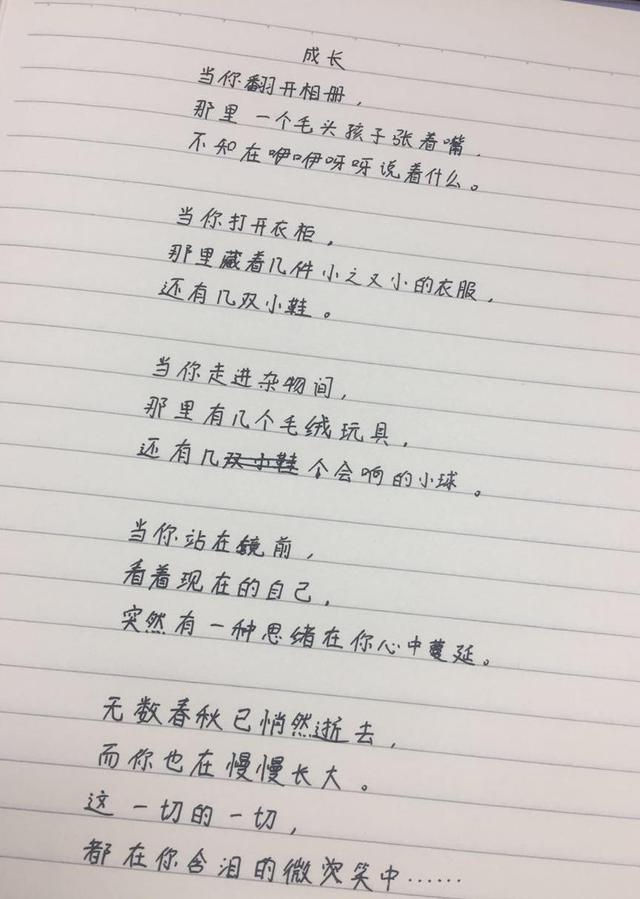 成长
当你翻开相册，
那里一个毛头孩子张着嘴，
不知在咿咿呀呀说着什么。
当你打开衣柜，
那里藏着几件小之又小的衣服，
还有几双小鞋。
当你走进杂物间，
那里有几个毛绒玩具，
还有几双小鞋个会响的小球。
当你站在镜前，
看着现在的自己，
突然有一种思绪在你心中蔓延。
无数春秋已悄然逝去，
而你也在慢慢长大。
这一切的一切，
都在你含泪的微笑中……